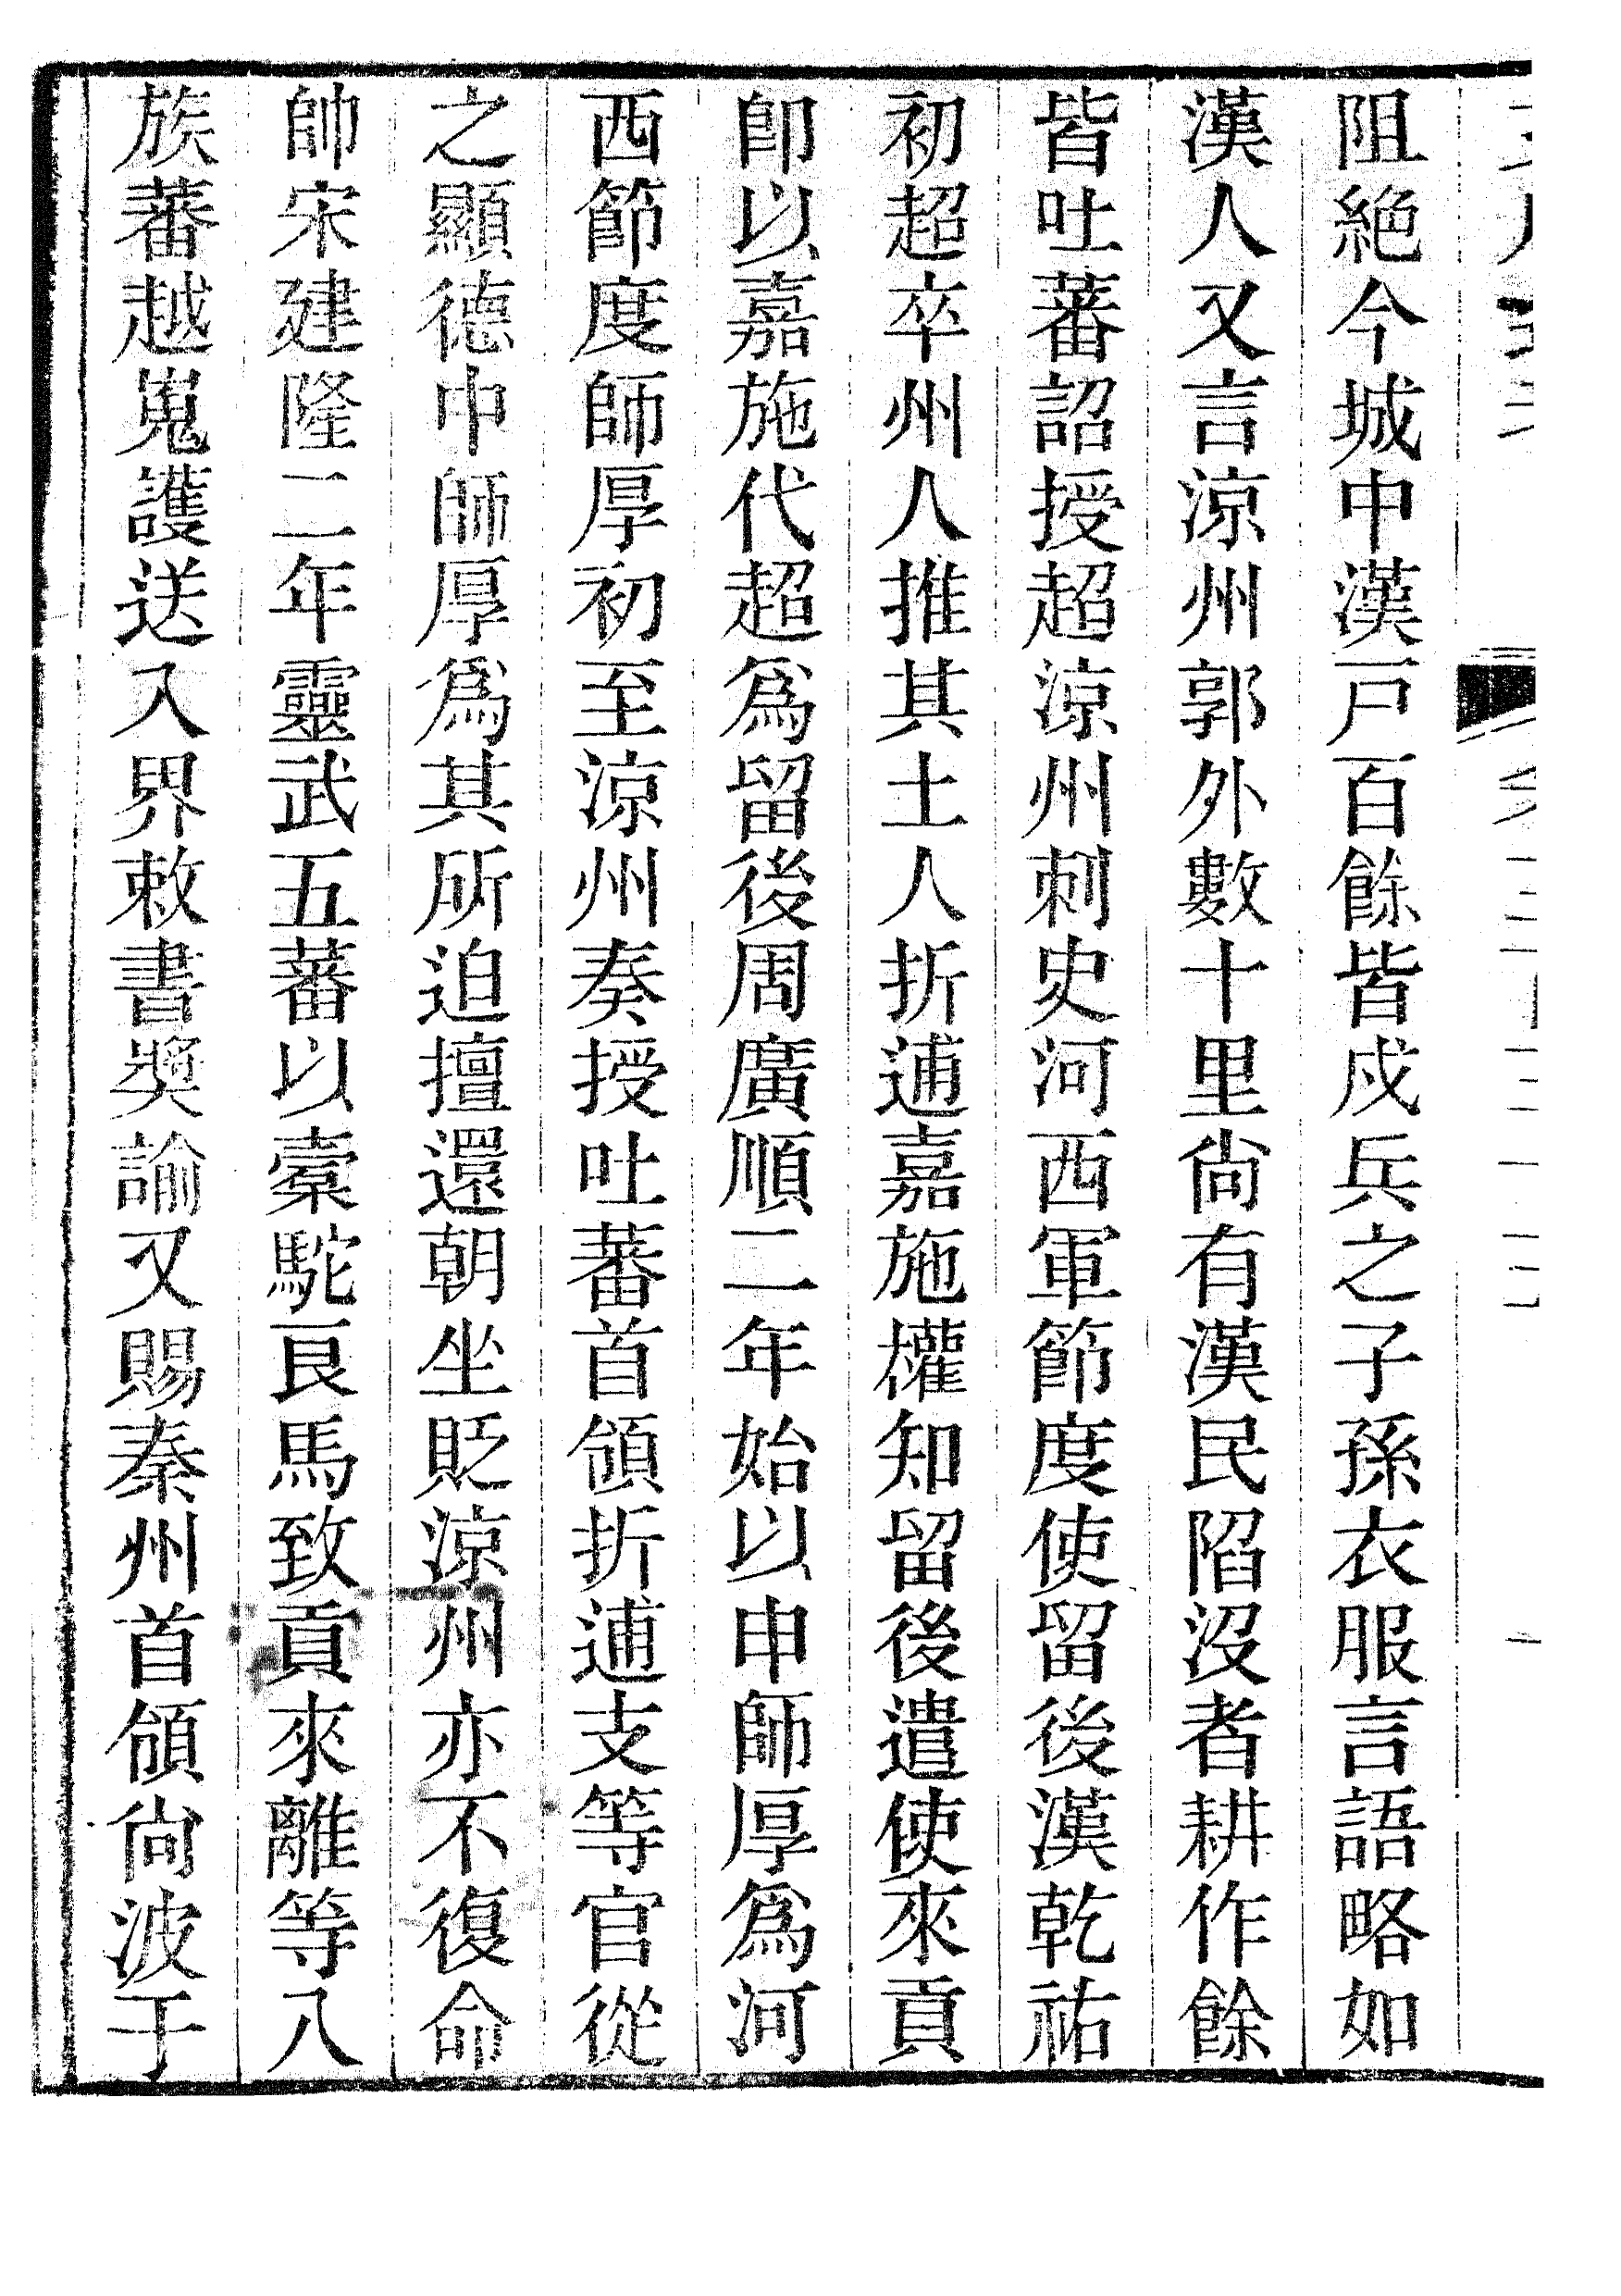 阻絶今城中漢戸百餘皆戍兵之子孫衣服言語略如
漢人又言涼州郭外數十里尙有漢民陷沒者耕作餘
皆吐蕃詔授超涼州刺史河西軍節度使留後漢乾祐
初超卒州人推其土人折逋嘉施權知留後遣使來貢
卽以嘉施代超爲留後周廣順二年始以申師厚爲河
西節度師厚初至涼州奏授吐蕃首領折逋支等官從
之顯德中師厚爲其所迫擅還朝坐貶涼州亦不復命
帥宋建隆二年靈武五蕃以橐駝良馬致貢來離等八
族蕃越嵬護送入界敕書獎諭又賜秦州首領尙波于